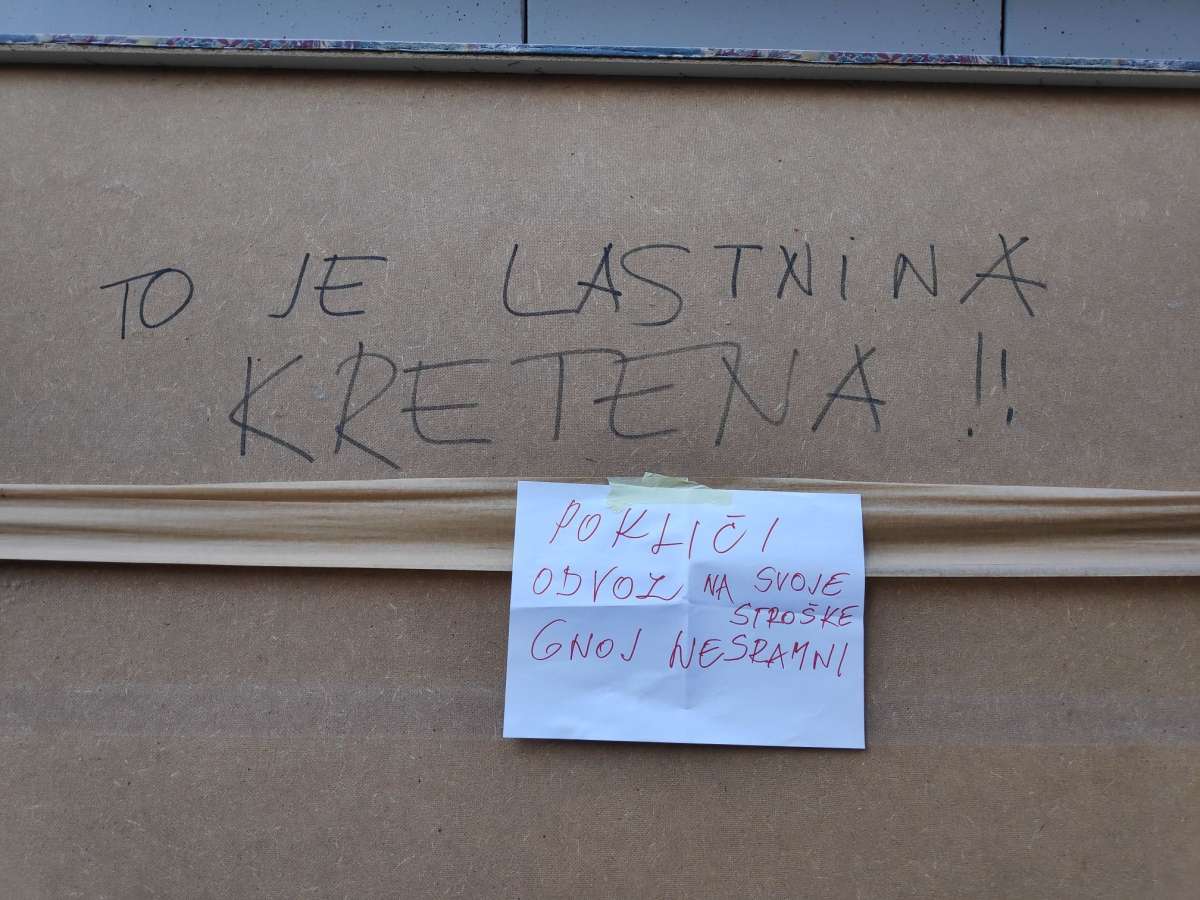 TO JE LASTNiNA
KRETENA !!
POKLIČI
ODVOZ NA SVOJE
STROŠKE
GNOJ NESRAMNI